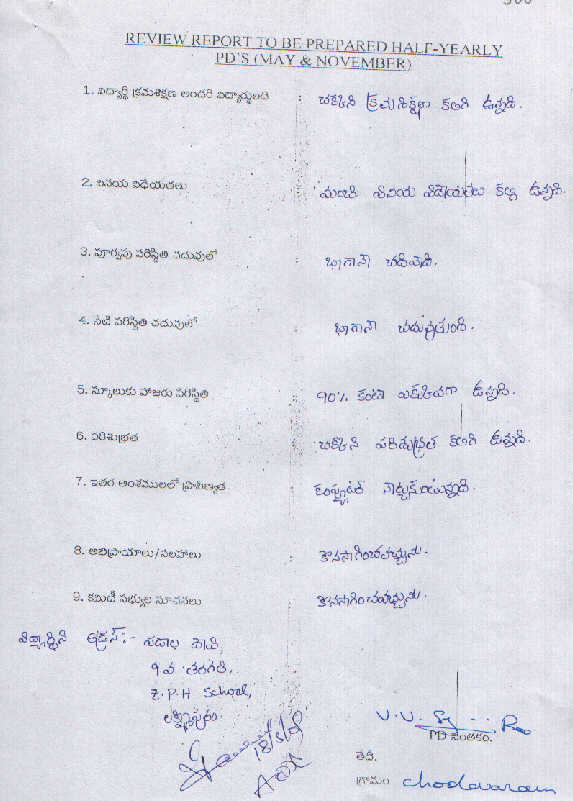 REVIEW REPORT TO BE PREPARED HALF-YEARLY
PD'S (MAY & NOVEMBER)
1. విద్యార్థి క్రమశిక్షణ అందరి విద్యార్థులతో : చక్కని క్రమశిక్షణ కలిగి ఉన్నది.
2. వినయ విధేయతలు : మంచి వినయ విధేయతలు కల్గి ఉన్నది.
3. పూర్వపు పరిస్థితి చదువులో : బాగానే చదివేది.
4. నేటి పరిస్థితి చదువులో : బాగానే చదువుతుంది.
5. స్కూలుకు హాజరు పరిస్థితి : 90% కంటె ఎక్కువగా ఉన్నది.
6. పరిశుభ్రత : చక్కని పరిశుభ్రత కలిగి ఉన్నది.
7. ఇతర అంశములలో ప్రావీణ్యత : కంప్యూటర్ నేర్చుకొనుచున్నది.
8. అభిప్రాయాలు/సలహాలు : కొనసాగించవచ్చును.
9. కమిటీ సభ్యుల సూచనలు : కొనసాగించవచ్చును.
విద్యార్థిని అడ్రస్:-
9 వ తరగతి,
Z.P.H School,
లక్ష్మీపురం
V.V.
PD సంతకం.
తేది.
గ్రామం chodavaram